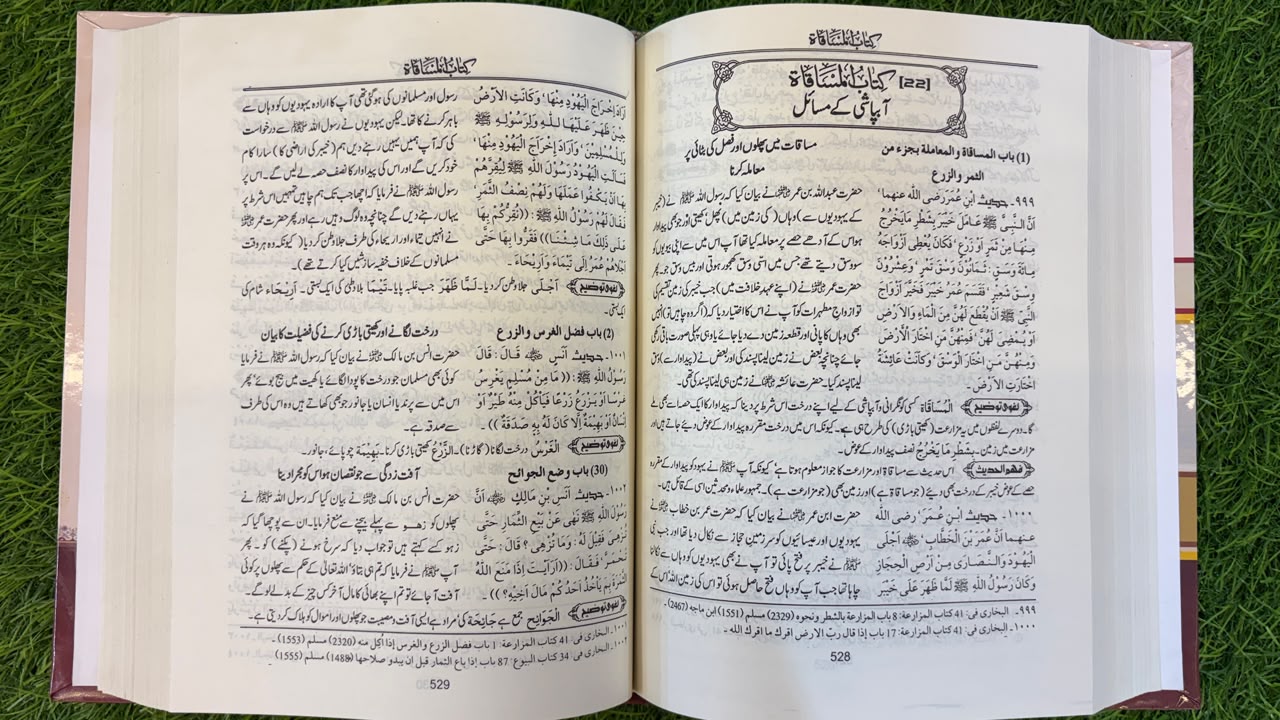 کتاب المساقاة
[22] کتاب المساقاة
آبپاشی کے مسائل
(1) باب المساقاة والمعاملة بجزء من
الثمر والزرع
مساقات میں پھلوں اور فصل کی بٹائی پر
معاملہ کرنا
۹۹۹۔ حدیث ابْنِ عُمَرَ رضی اللّٰہ عنهما'
اَنَّ النَّبِیَّ ﷺ عَامَلَ خَيْبَرَ بِشَطْرِ مَايَخْرُجُ
مِنْهَا مِنْ ثَمَرٍ اَوْ زَرْعٍ' فَكَانَ يُعْطِى اَزْوَاجَهُ
مِائَةَ وَسْقٍ: ثَمَانُوْنَ وَسْقَ تَمْرٍ' وَعِشْرُوْنَ
وِسْقَ شَعِيْرٍ' فَقَسَمَ عُمَرُ خَيْبَرَ فَخَيَّرَ اَزْوَاجَ
النَّبِیِّ ﷺ اَنْ يُقْطِعَ لَهُنَّ مِنَ الْمَاءِ وَالْاَرْضِ
اَوْ يُمْضِىَ لَهُنَّ' فَمِنْهُنَّ مَنِ اخْتَارَ الْاَرْضَ
وَمِنْهُنَّ مَنِ اخْتَارَ الْوَسْقَ' وَكَانَتْ عَائِشَةُ
اخْتَارَتِ الْاَرْضَ۔
حضرت عبداللہ بن عمر رضی اللہ عنہما نے بیان کیا کہ رسول اللہ ﷺ نے (خیبر
کے یہودیوں سے) وہاں (کی زمین میں) پھل' کھیتی اور جو بھی پیداوار
ہو اس کے آدھے حصے پر معاملہ کیا تھا آپ اس میں سے اپنی بیویوں کو
سو وسق دیتے تھے جس میں اسی وسق کھجور ہوتی اور بیس وسق جو۔ پھر
حضرت عمر رضی اللہ عنہ نے (اپنے عہد خلافت میں) جب خیبر کی زمین تقسیم کی
تو ازواج مطہرات کو آپ نے اس کا اختیار دیا کہ (اگر وہ چاہیں تو) انہیں
بھی وہاں کا پانی اور قطعہ زمین دے دیا جائے یا وہی پہلی صورت باقی رکھی
جائے چنانچہ بعض نے زمین لینا پسند کی اور بعض نے (پیداوار سے) وسق
لینا پسند کیا۔ حضرت عائشہ رضی اللہ عنہا نے زمین ہی لینا پسند کی تھی۔
لغوی توضیح اَلْمُسَاقَاة کسی کو نگرانی و آبپاشی کے لیے اپنے درخت اس شرط پر دینا کہ پیداوار کا ایک حصہ اسے بھی ملے
گا۔ دوسرے لفظوں میں یہ مزارعت (کھیتی باڑی) کی طرح ہی ہے۔ کیونکہ اس میں درخت مقررہ پیداوار کے عوض دیئے جاتے ہیں اور
مزارعت میں زمین۔ بِشَطْرِ مَا يَخْرُجُ نصف پیداوار کے عوض۔
فهم الحدیث اس حدیث سے مساقاۃ اور مزارعت کا جواز معلوم ہوتا ہے' کیونکہ آپ ﷺ نے یہود کو پیداوار کے مقررہ
حصے کے عوض خیبر کے درخت بھی دیئے (جو مساقاۃ ہے) اور زمین بھی (جو مزارعت ہے)۔ جمہور علماء و محدثین اسی کے قائل ہیں۔
۱۰۰۰۔ حدیث ابْنِ عُمَرَ' رضی اللّٰہ
عنهما اَنَّ عُمَرَ بْنَ الْخَطَّابِ' اَجْلٰى
الْيَهُوْدَ وَالنَّصَارٰى مِنْ اَرْضِ الْحِجَازِ
وَكَانَ رَسُوْلُ اللّٰهِ ﷺ لَمَّا ظَهَرَ عَلٰى خَيْبَرَ
حضرت ابن عمر رضی اللہ عنہما نے بیان کیا کہ حضرت عمر بن خطاب رضی اللہ عنہ نے
یہودیوں اور عیسائیوں کو سرزمین حجاز سے نکال دیا تھا اور جب نبی
ﷺ نے خیبر پر فتح پائی تو آپ نے بھی یہودیوں کو وہاں سے نکالنا
چاہا تھا جب آپ کو وہاں فتح حاصل ہوئی تو اس کی زمین اللہ اس کے
۹۹۹۔ البخاری فی: 41 کتاب المزارعة: 8 باب المزارعة بالشطر ونحوه (2329) مسلم (1551) ابن ماجه (2467)۔
۱۰۰۰۔ البخاری فی: 41 کتاب المزارعة: 17 باب إذا قال ربّ الارض اقرك ما اقرك الله ۔
528
کتاب المساقاة
اَرَادَ اِخْرَاجَ الْيَهُوْدِ مِنْهَا' وَكَانَتِ الْاَرْضُ
حِيْنَ ظَهَرَ عَلَيْهَا لِلّٰهِ وَلِرَسُوْلِهٖ ﷺ
وَلِلْمُسْلِمِيْنَ' وَاَرَادَ اِخْرَاجَ الْيَهُوْدِ مِنْهَا'
فَسَاَلَتِ الْيَهُوْدُ رَسُوْلَ اللّٰهِ ﷺ لِيُقِرَّهُمْ
بِهَا اَنْ يَكْفُوْا عَمَلَهَا وَلَهُمْ نِصْفُ الثَّمَرِ
فَقَالَ لَهُمْ رَسُوْلُ اللّٰهِ ﷺ: ((نُقِرُّكُمْ بِهَا
عَلٰى ذٰلِكَ مَا شِئْنَا)) فَقَرُّوْا بِهَا حَتّٰى
اَجْلَاهُمْ عُمَرُ اِلٰى تَيْمَاءَ وَاَرِيْحَاءَ ۔
رسول اور مسلمانوں کی ہو گئی تھی آپ کا ارادہ یہودیوں کو وہاں سے
باہر کرنے کا تھا۔ لیکن یہودیوں نے رسول اللہ ﷺ سے درخواست
کی کہ آپ ہمیں یہیں رہنے دیں ہم (خیبر کی اراضی کا) سارا کام
خود کریں گے اور اس کی پیداوار کا نصف حصہ لے لیں گے۔ اس پر
رسول اللہ ﷺ نے فرمایا کہ اچھا جب تک ہم چاہیں تمہیں اس شرط پر
یہاں رہنے دیں گے چنانچہ وہ لوگ وہیں رہے اور پھر حضرت عمر رضی اللہ عنہ
نے انہیں تیماء اور اریحاء کی طرف جلا وطن کر دیا (کیونکہ وہ ہر وقت
مسلمانوں کے خلاف خفیہ سازشیں کیا کرتے تھے)۔
لغوی توضیح اَجْلٰى جلاوطن کر دیا۔ لَمَّا ظَهَرَ جب غلبہ پایا۔ تَيْمَا بلادِ طی کی ایک بستی۔ اَرِيْحَاء شام کی
ایک بستی۔
(2) باب فضل الغرس والزرع
درخت لگانے اور کھیتی باڑی کرنے کی فضیلت کا بیان
۱۰۰۱۔ حدیث اَنَسٍ ؓ قَالَ: قَالَ
رَسُوْلُ اللّٰهِ ﷺ: ((مَا مِنْ مُسْلِمٍ يَغْرِسُ
غَرْسًا اَوْ يَزْرَعُ زَرْعًا فَيَاْكُلُ مِنْهُ طَيْرٌ اَوْ
اِنْسَانٌ اَوْ بَهِيْمَةٌ اِلَّا كَانَ لَهُ بِهٖ صَدَقَةٌ))۔
حضرت انس بن مالک رضی اللہ عنہ نے بیان کیا کہ رسول اللہ ﷺ نے فرمایا
کوئی بھی مسلمان جو درخت کا پودا لگائے یا کھیت میں بیج بوئے' پھر
اس میں سے پرندیا انسان یا جانور جو بھی کھاتے ہیں وہ اس کی طرف
سے صدقہ ہے۔
لغوی توضیح اَلْغَرْسُ درخت لگانا (گاڑنا)۔ اَلزَّرْعُ کھیتی باڑی کرنا۔ بَهِيْمَةٌ چوپائے، جانور۔
(30) باب وضع الجوائح
آفت زدگی سے جو نقصان ہو اس کو مجرا دینا
۱۰۰۲۔ حدیث اَنَسِ بْنِ مَالِكٍ ؓ اَنَّ
رَسُوْلَ اللّٰهِ ﷺ نَهٰى عَنْ بَيْعِ الثِّمَارِ حَتّٰى
تُزْهِىَ فَقِيْلَ لَهُ: وَمَا تُزْهِى؟ قَالَ: حَتّٰى
تَحْمَرَّ' فَقَالَ: ((اَرَاَيْتَ اِذَا مَنَعَ اللّٰهُ
الثَّمَرَةَ بِمَ يَاْخُذُ اَحَدُكُمْ مَالَ اَخِيْهِ؟))
حضرت انس بن مالک رضی اللہ عنہ نے بیان کیا کہ رسول اللہ ﷺ نے
پھلوں کو زھـو سے پہلے بیچنے سے منع فرمایا۔ ان سے پوچھا گیا کہ
زہو کسے کہتے ہیں تو جواب دیا کہ سرخ ہونے (پکنے) کو۔ پھر
آپ ﷺ نے فرمایا کہ تم ہی بتاؤ' اللہ تعالیٰ کے حکم سے پھلوں پر کوئی
آفت آ جائے تو تم اپنے بھائی کا مال آخر کس چیز کے بدلے لو گے۔
لغوی توضیح اَلْجَوَائِح جمع ہے جَائِحَة کی مراد ہے ایسی آفت و مصیبت جو پھلوں اور اموال کو ہلاک کر دیتی ہے۔
۱۰۰۱۔ البخاری فی: 41 کتاب المزارعة: 1 باب فضل الزرع والغرس إذا أكل منه (2320) مسلم (1553)
۱۰۰۲۔ البخاری فی: 34 کتاب البیوع: 87 باب إذا باع الثمار قبل ان يبدو صلاحها (1488) مسلم (1555)
529